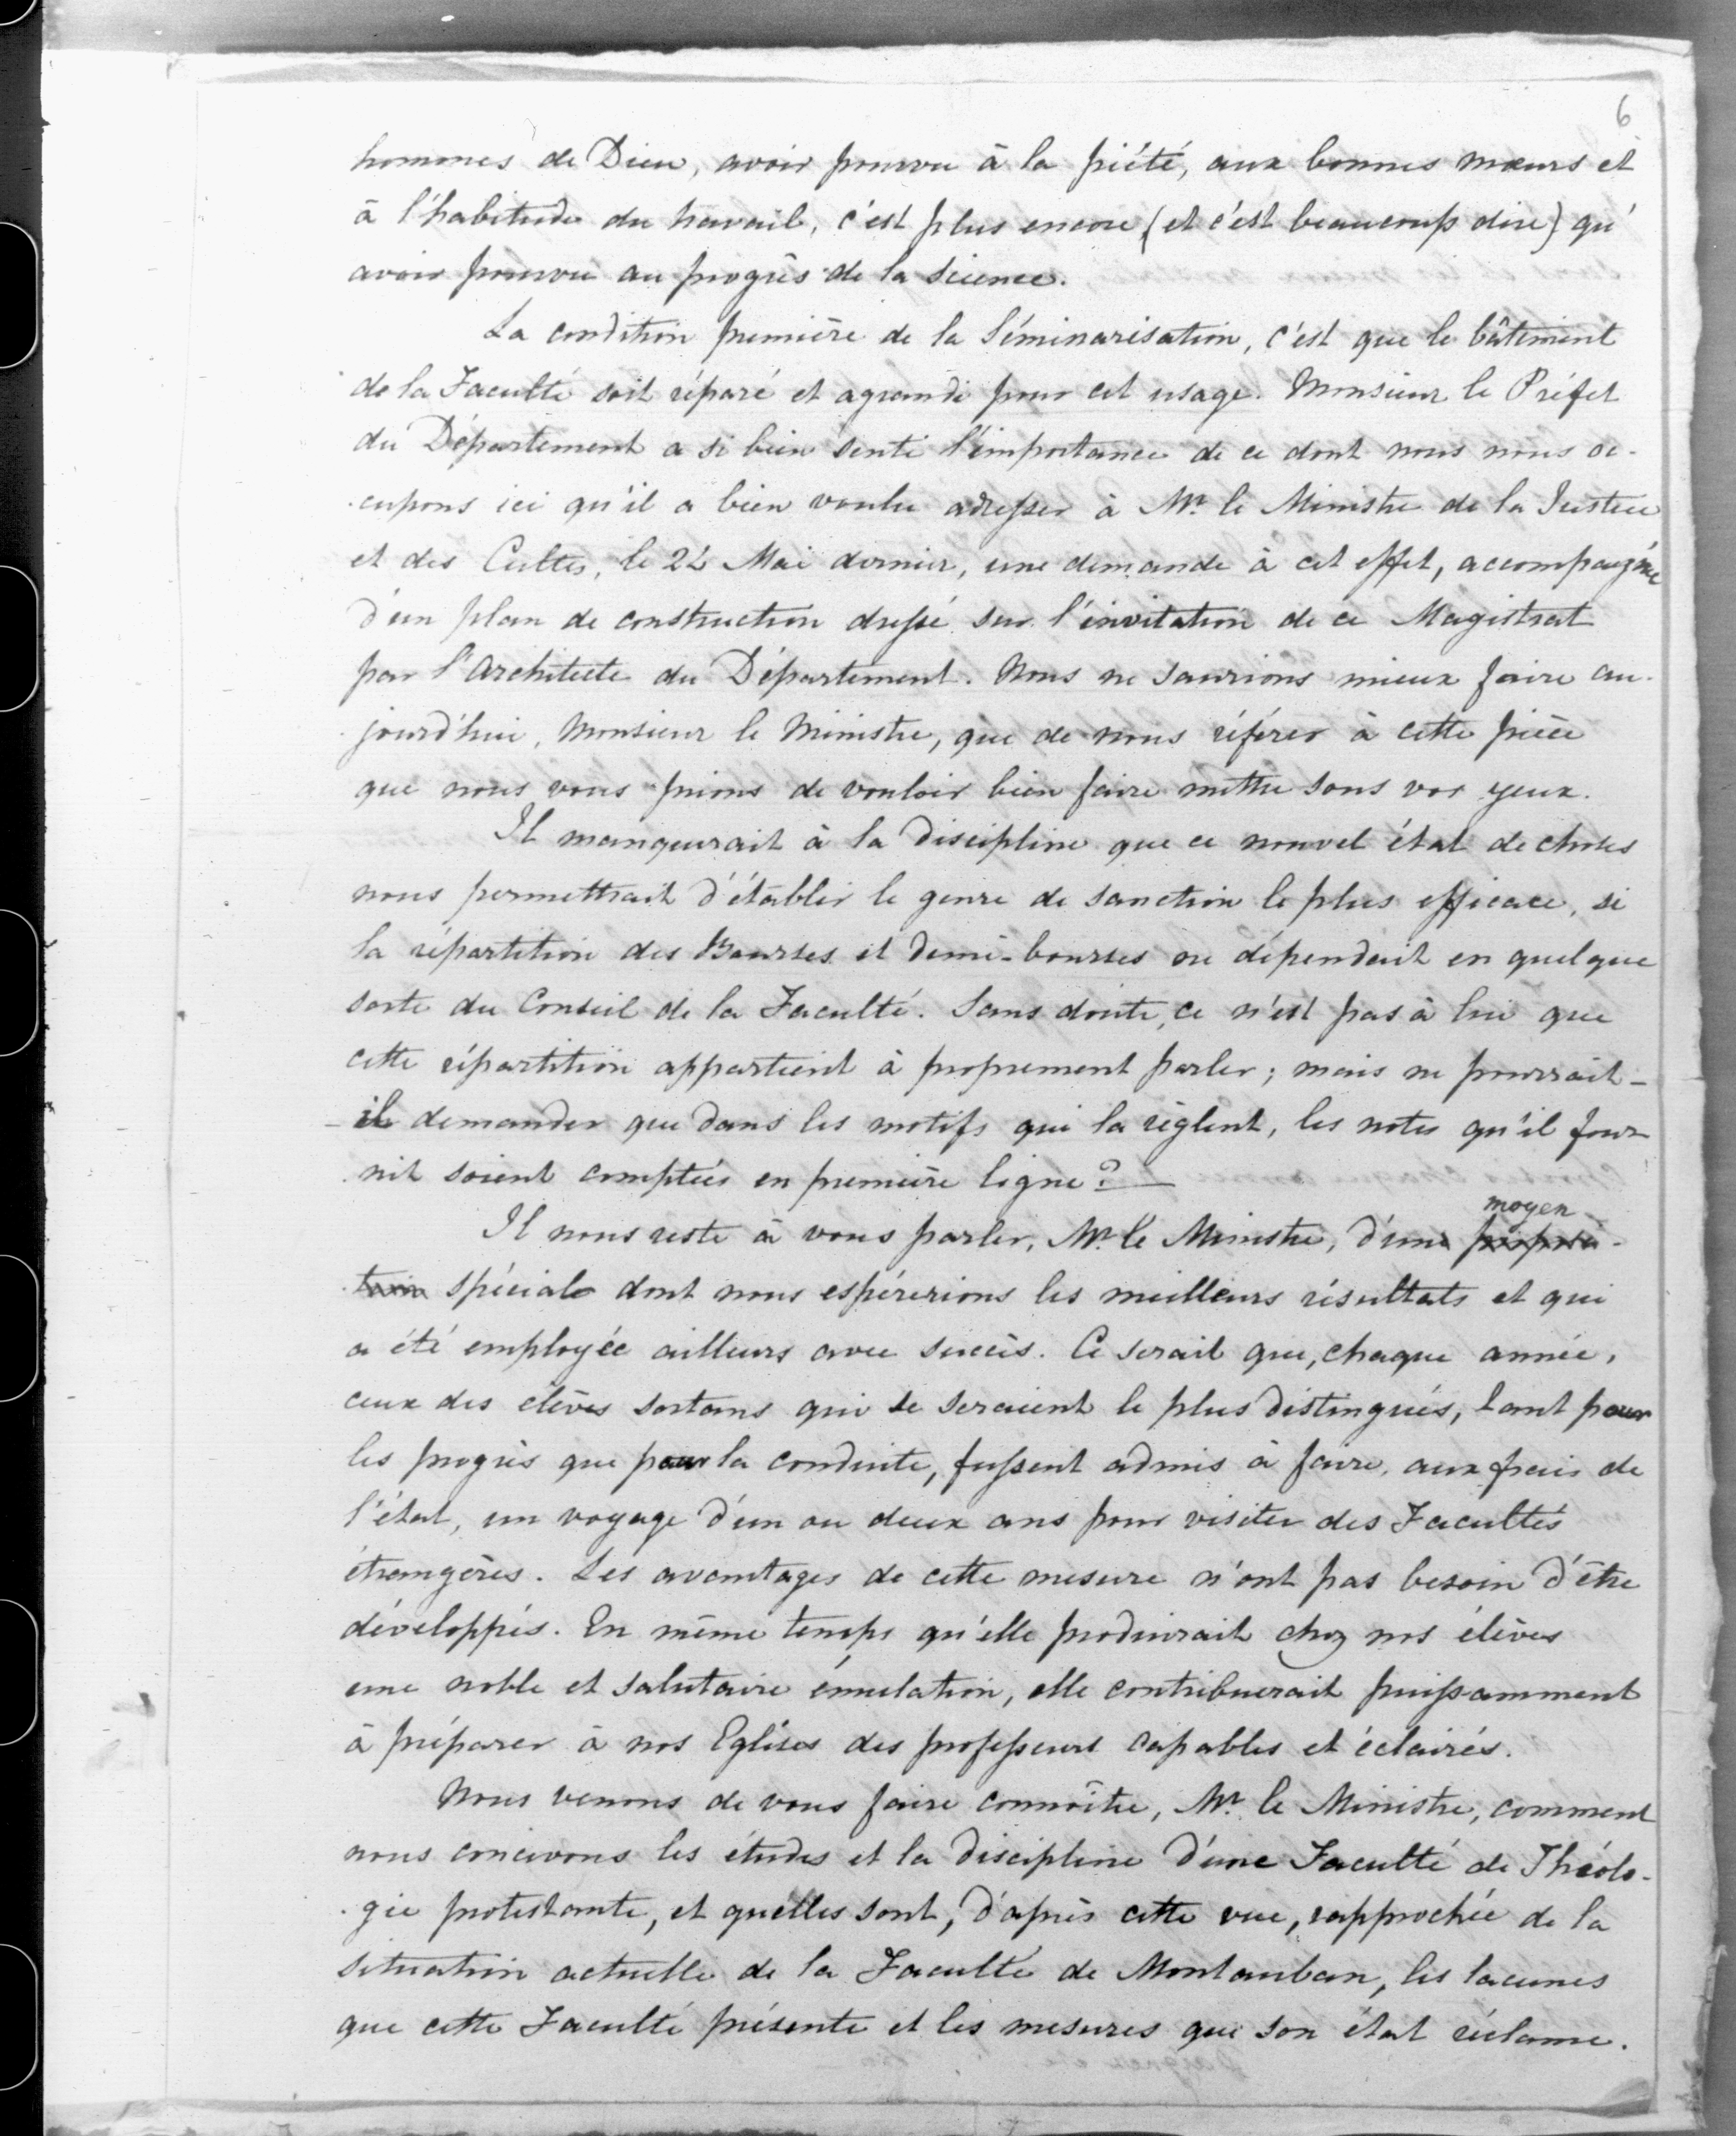 6
hommes de Dieu, avoir pourvu à la piété, aux bonnes mœurs et
à l'habitude du travail, c'est plus encore (et c'est beaucoup dire) qu'
avoir pourvu au progrès de la science.
La condition première de la Séminarisation, c'est que le bâtiment
de la Faculté soit réparé et agrandi pour cet usage. Monsieur le Préfet
du Département a si bien senti l'importance de ce dont nous nous oc-
-cupons ici qu'il a bien voulu adresser à Mr. le Ministre de la Justice
et des Cultes, le 22 Mai dernier, une demande à cet effet, accompagnée
d'un plan de construction dressé sur l'invitation de ce Magistrat
par l'Architecte du Département. Nous ne saurions mieux faire au-
-jourd'hui, Monsieur le Ministre, que de nous référer à cette pièce
que nous vous prions de vouloir bien faire mettre sous vos yeux.
Il manquerait à la discipline que ce nouvel état de choses
nous permettrait d'établir le genre de sanction le plus efficace, si
la répartition des Bourses et demi-bourses ne dépendait en quelque
sorte du Conseil de la Faculté. Sans doute, ce n'est pas à lui que
cette répartition appartient à proprement parler; mais ne pourrait-
-il demander que dans les motifs qui la règlent, les notes qu'il four-
nit soient comptées en première ligne? —
moyen
Il nous reste à vous parler, Mr. le Ministre, d'une proposi-
-tion spécial dont nous espérerions les meilleurs résultats et qui
a été employée ailleurs avec succès. Ce serait que, chaque année,
ceux des élèves sortans qui se seraient le plus distingués, tant pour
les progrès que pour la conduite, fussent admis à faire, aux frais de
l'état, un voyage d'un ou deux ans pour visiter des Facultés
étrangères. Les avantages de cette mesure n'ont pas besoin d'être
développés. En même temps qu'elle produirait chez nos élèves
une noble et salutaire émulation, elle contribuerait puissamment
à préparer à nos Eglises des professeurs capables et éclairés.
Nous venons de vous faire connoître, Mr. le Ministre, comment
nous concevons les études et la discipline d'une Faculté de Théolo-
-gie protestante, et quelles sont, d'après cette vue, rapprochée de la
situation actuelle de la Faculté de Montauban, les lacunes
que cette Faculté présente et les mesures que son état réclame.